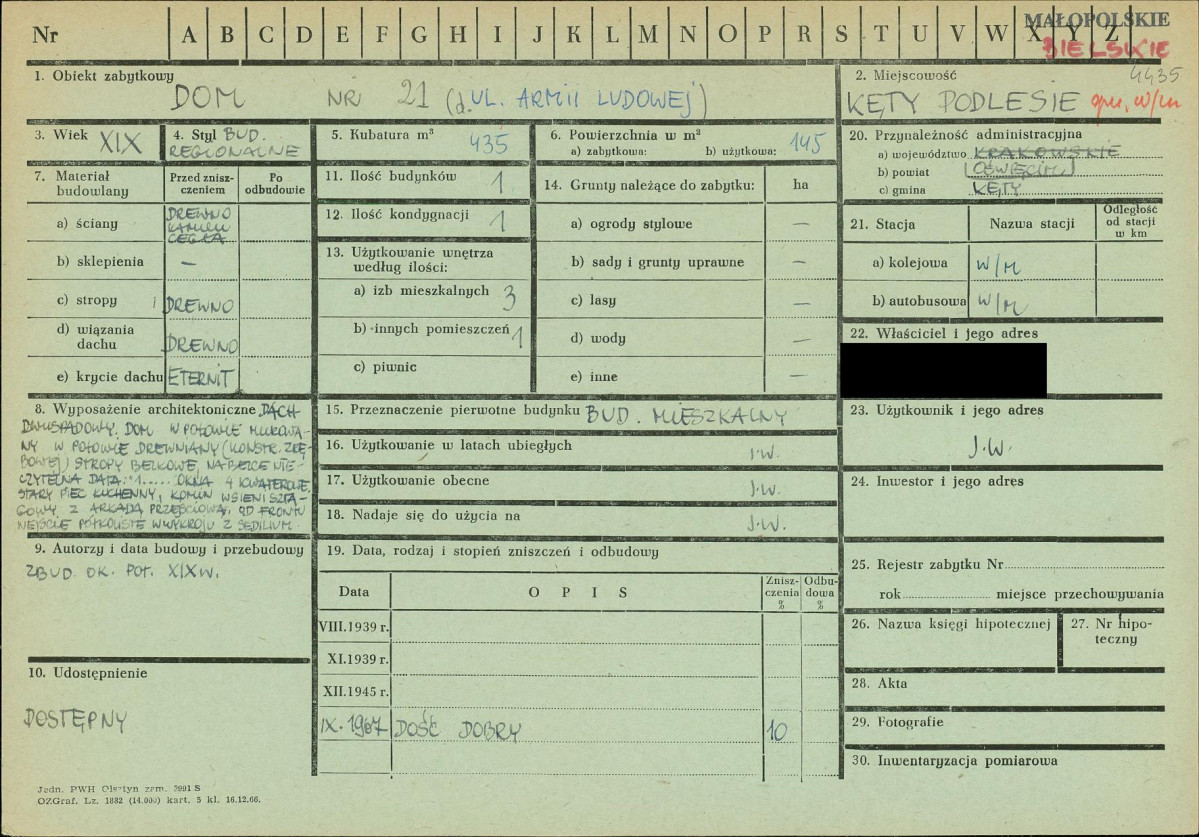 Nr A B C D E F G H I J K L M N O P R S T U V W X Y Z
MAŁOPOLSKIE
BIELSKIE
4435
1. Obiekt zabytkowy
DOM NR 21 (d. UL. ARMII LUDOWEJ)
2. Miejscowość
KĘTY PODLESIE gm. w/m
3. Wiek XIX
4. Styl BUD.
REGIONALNE
5. Kubatura m³
435
6. Powierzchnia w m²
a) zabytkowa: b) użytkowa: 145
7. Materiał
budowlany
Przed znisz-
czeniem
Po
odbudowie
a) ściany DREWNO
KAMIEŃ
CEGŁA
b) sklepienia —
c) stropy DREWNO
d) wiązania
dachu DREWNO
e) krycie dachu ETERNIT
11. Ilość budynków 1
12. Ilość kondygnacji 1
13. Użytkowanie wnętrza
według ilości:
a) izb mieszkalnych 3
b) innych pomieszczeń 1
c) piwnic
14. Grunty należące do zabytku: ha
a) ogrody stylowe —
b) sady i grunty uprawne —
c) lasy —
d) wody —
e) inne —
20. Przynależność administracyjna
a) województwo KRAKOWSKIE
b) powiat (OŚWIĘCIM)
c) gmina KĘTY
21. Stacja Nazwa stacji Odległość
od stacji
w km
a) kolejowa W/M
b) autobusowa W/M
22. Właściciel i jego adres
8. Wyposażenie architektoniczne DACH
DWUSPADOWY. DOM W POŁOWIE MUROWA-
NY W POŁOWIE DREWNIANY (KONSTR. ZRĘ-
BOWEJ) STROPY BELKOWE, NA BELCE NIE-
CZYTELNA DATA: "1..... OKNA 4 KWATEROWE.
STARY PIEC KUCHENNY, KOMIN W SIENI SZTA-
GOWY Z ARKADĄ PRZEJŚCIOWĄ, OD FRONTU
WEJŚCIE PÓŁKOLISTE W WYKROJU Z SEDILIUM.
15. Przeznaczenie pierwotne budynku BUD. MIESZKALNY
16. Użytkowanie w latach ubiegłych J.W.
17. Użytkowanie obecne J.W.
18. Nadaje się do użycia na J.W.
23. Użytkownik i jego adres
J.W.
24. Inwestor i jego adres
9. Autorzy i data budowy i przebudowy
ZBUD. OK. POŁ. XIX W.
19. Data, rodzaj i stopień zniszczeń i odbudowy
Data O P I S Znisz-
czenia
% Odbu-
dowa
%
VIII.1939 r.
XI.1939 r.
XII.1945 r.
IX.1967 DOŚĆ DOBRY 10
25. Rejestr zabytku Nr
rok miejsce przechowywania
26. Nazwa księgi hipotecznej
27. Nr hipo-
teczny
28. Akta
29. Fotografie
30. Inwentaryzacja pomiarowa
10. Udostępnienie
DOSTĘPNY
Jedn. PWH Olsztyn zam. 3991 S
OZGraf. Lz. 1882 (14.000) kart. 5 kl. 16.12.66.